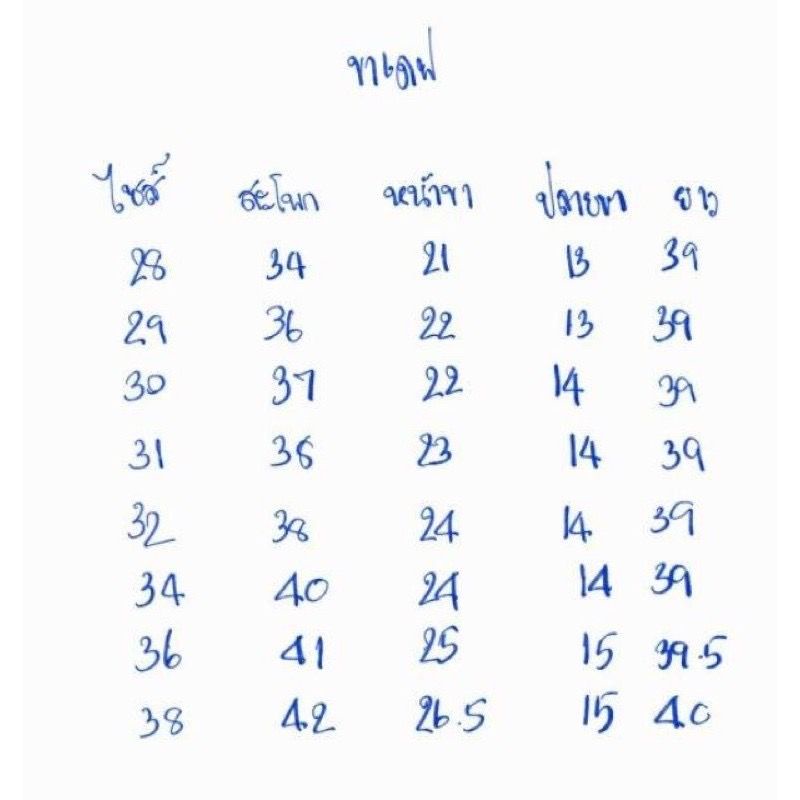 ขาเดฟ
ไซส์ สะโพก หน้าขา ปลายขา ยาว
28 34 21 13 39
29 36 22 13 39
30 37 22 14 39
31 38 23 14 39
32 38 24 14 39
34 40 24 14 39
36 41 25 15 39.5
38 42 26.5 15 40